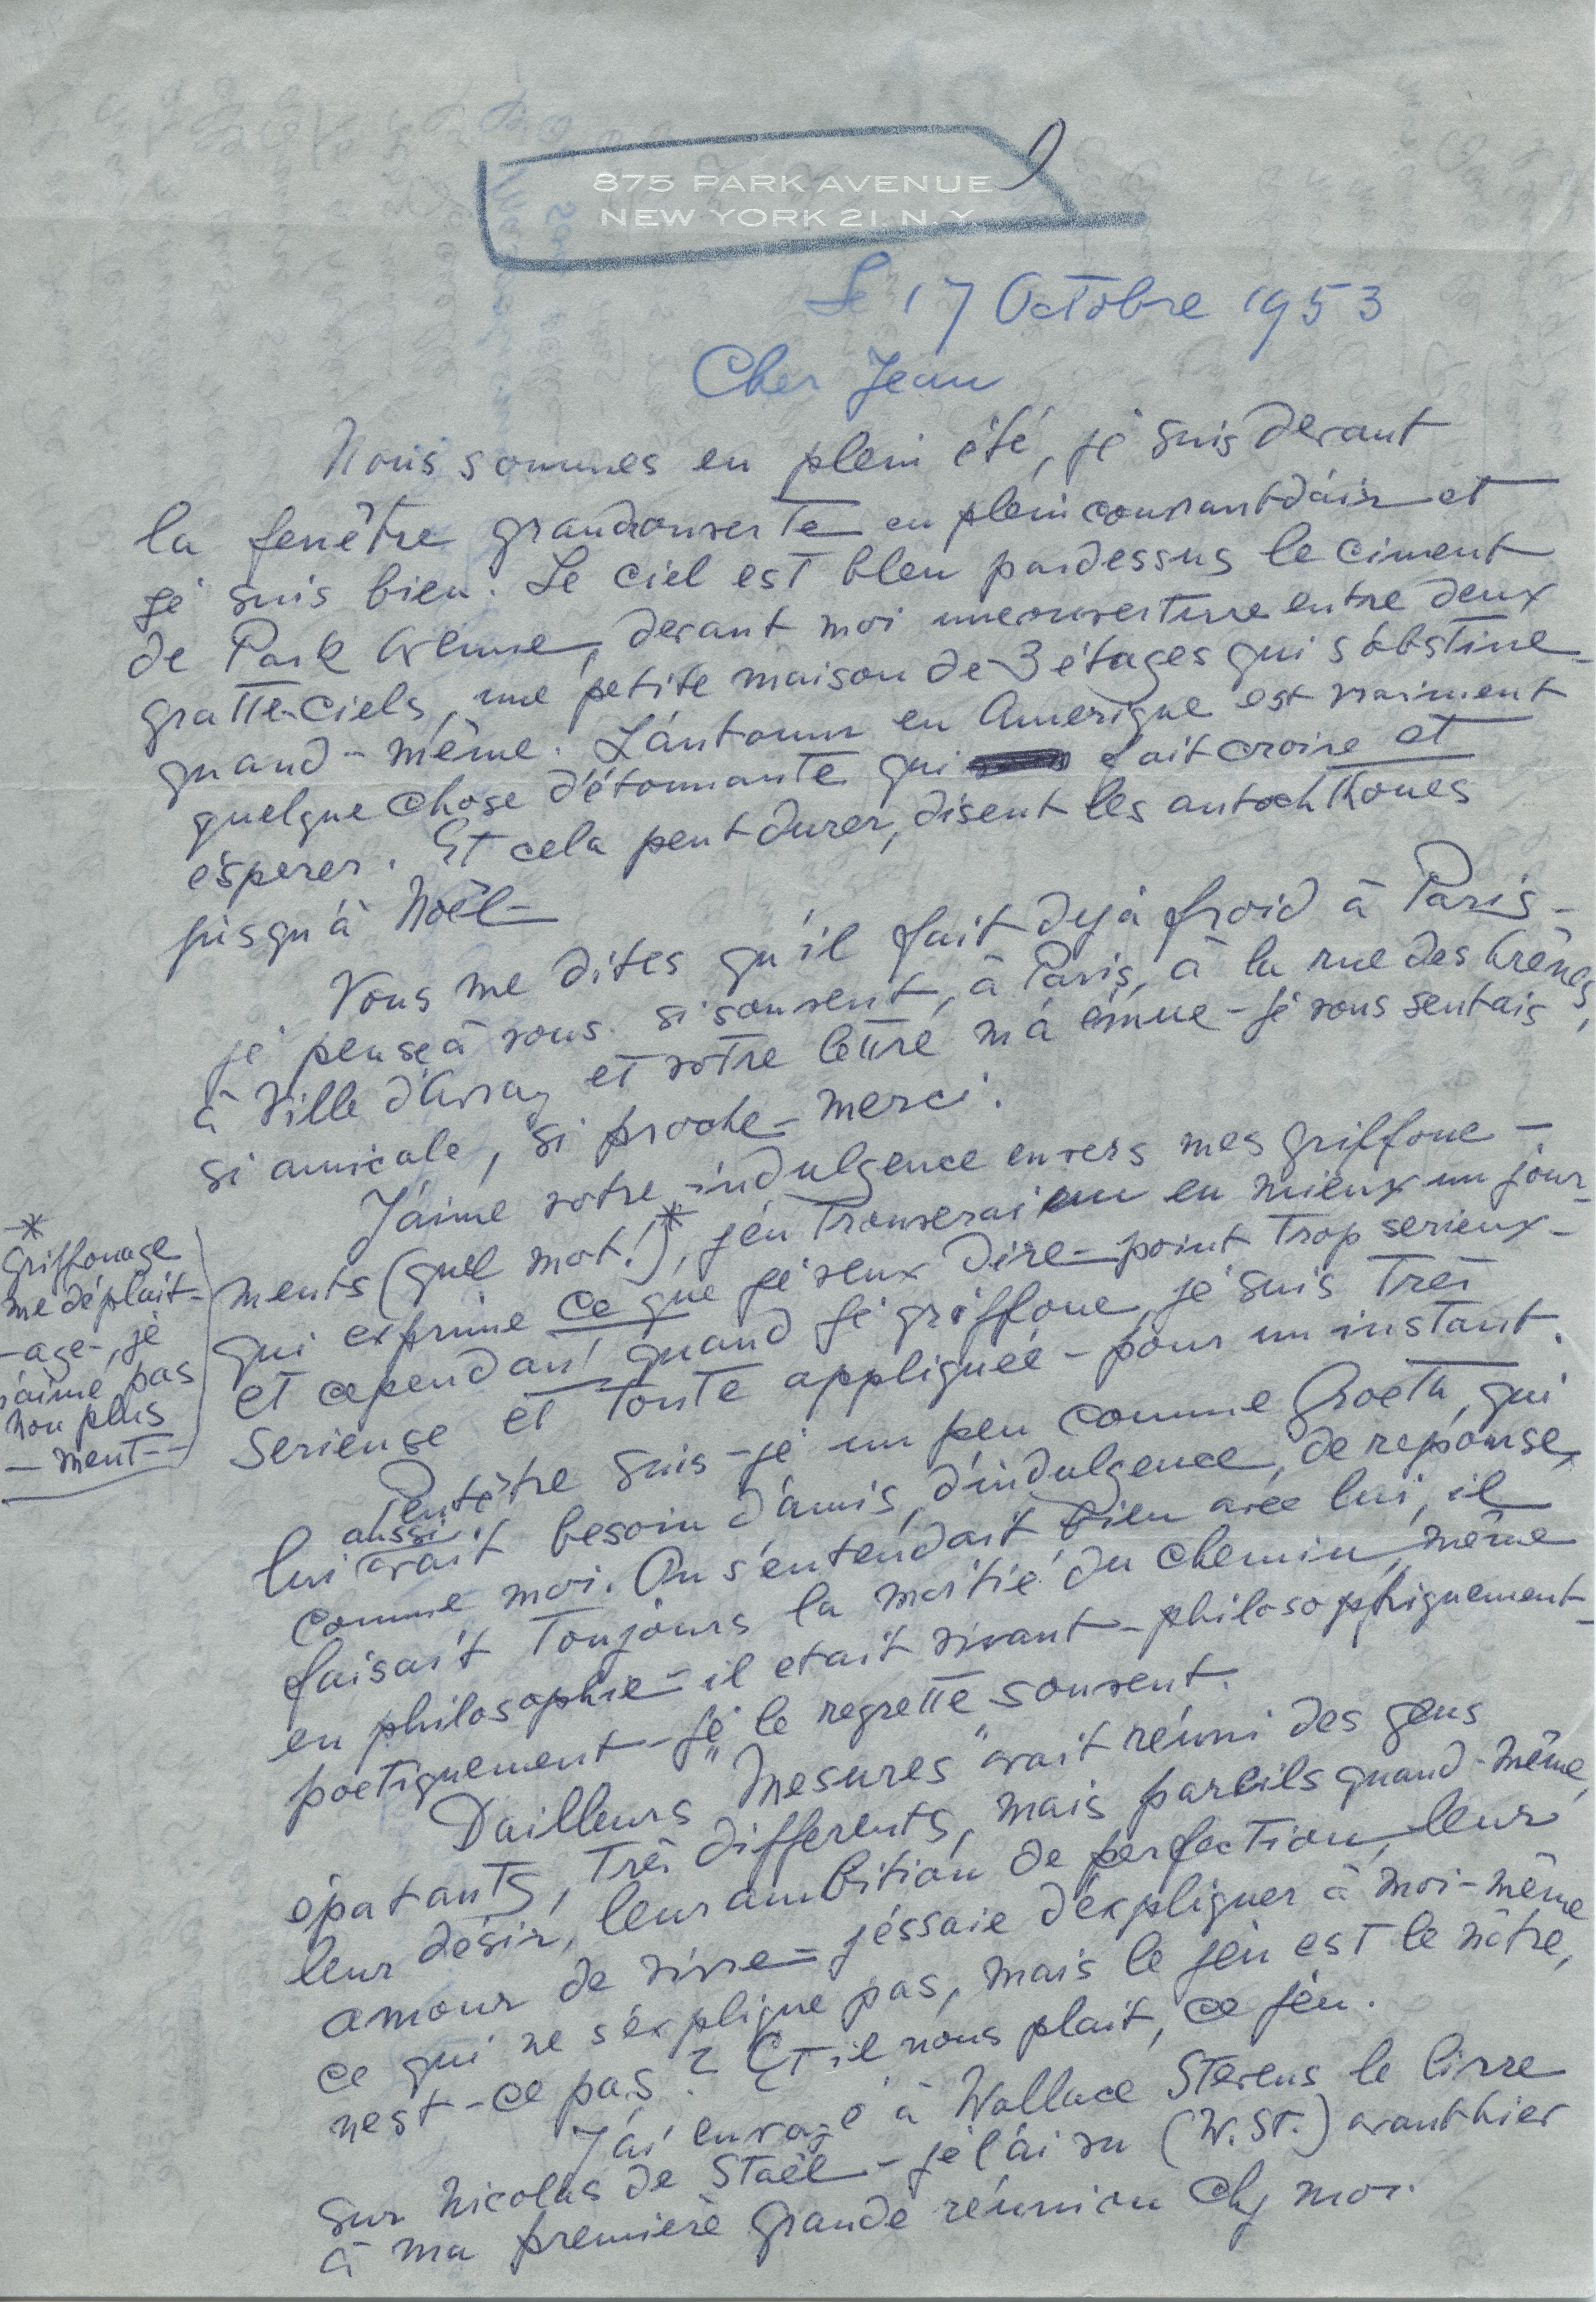 875 PARK AVENUE
NEW YORK 21. N. Y.
Le 17 Octobre 1953
Cher Jean
Nous sommes en plein été, je suis devant
la fenêtre grandouverte en plein courant d'air et
je suis bien. Le ciel est bleu pardessus le ciment
de Park Avenue, devant moi une ouverture entre deux
gratte-ciels, une petite maison de 3 étages qui s'obstine
quand-même. L'automn en Amerique est vraiment
quelque chose d'étonnante qui fait croire et
esperer. Et cela peut durer, disent les autochthones
jusqu'à Noël-
Vous me dites qu'il fait dejà froid à Paris-
je pense à vous si souvent, à Paris, à la rue des Arènes,
à Ville d'Avray et votre lettre m'a émue - je vous sentais
si amicale, si proche - merci.
J'aime votre indulgence envers mes griffone-
ments (quel mot!)*, j'en trouverai un en mieux un jour
qui exprime ce que je veux dire - point trop serieux-
et cependant quand je griffone, je suis très
serieuse et toute appliquée - pour un instant.
* Griffonage
me déplait-
-age-, je
n'aime pas
non plus
-ment-
Peutêtre suis-je un peu comme Groeth, qui
lui aussi avait besoin d'amis, d'indulgence, de reponse,
comme moi. On s'entendait bien avec lui, il
faisait toujours la moitié du chemin, même
en philosophie - il etait vivant - philosophiquement-
poetiquement - je le regrette souvent.
D'ailleurs "Mesures" avait réuni des gens
épatants, très differents, mais pareils quand-même,
leur désir, leur ambition de perfection, leur
amour de vivre - j'éssaie d'expliquer à moi-même
ce qui ne s'explique pas, mais le jeu est le nôtre,
n'est-ce pas? Et il nous plait, ce jeu.
J'ai envoyé à Wallace Stevens le livre
sur Nicolas de Staël - je l'ai vu (W. St.) avanthier
à ma première grande réunion chez moi.